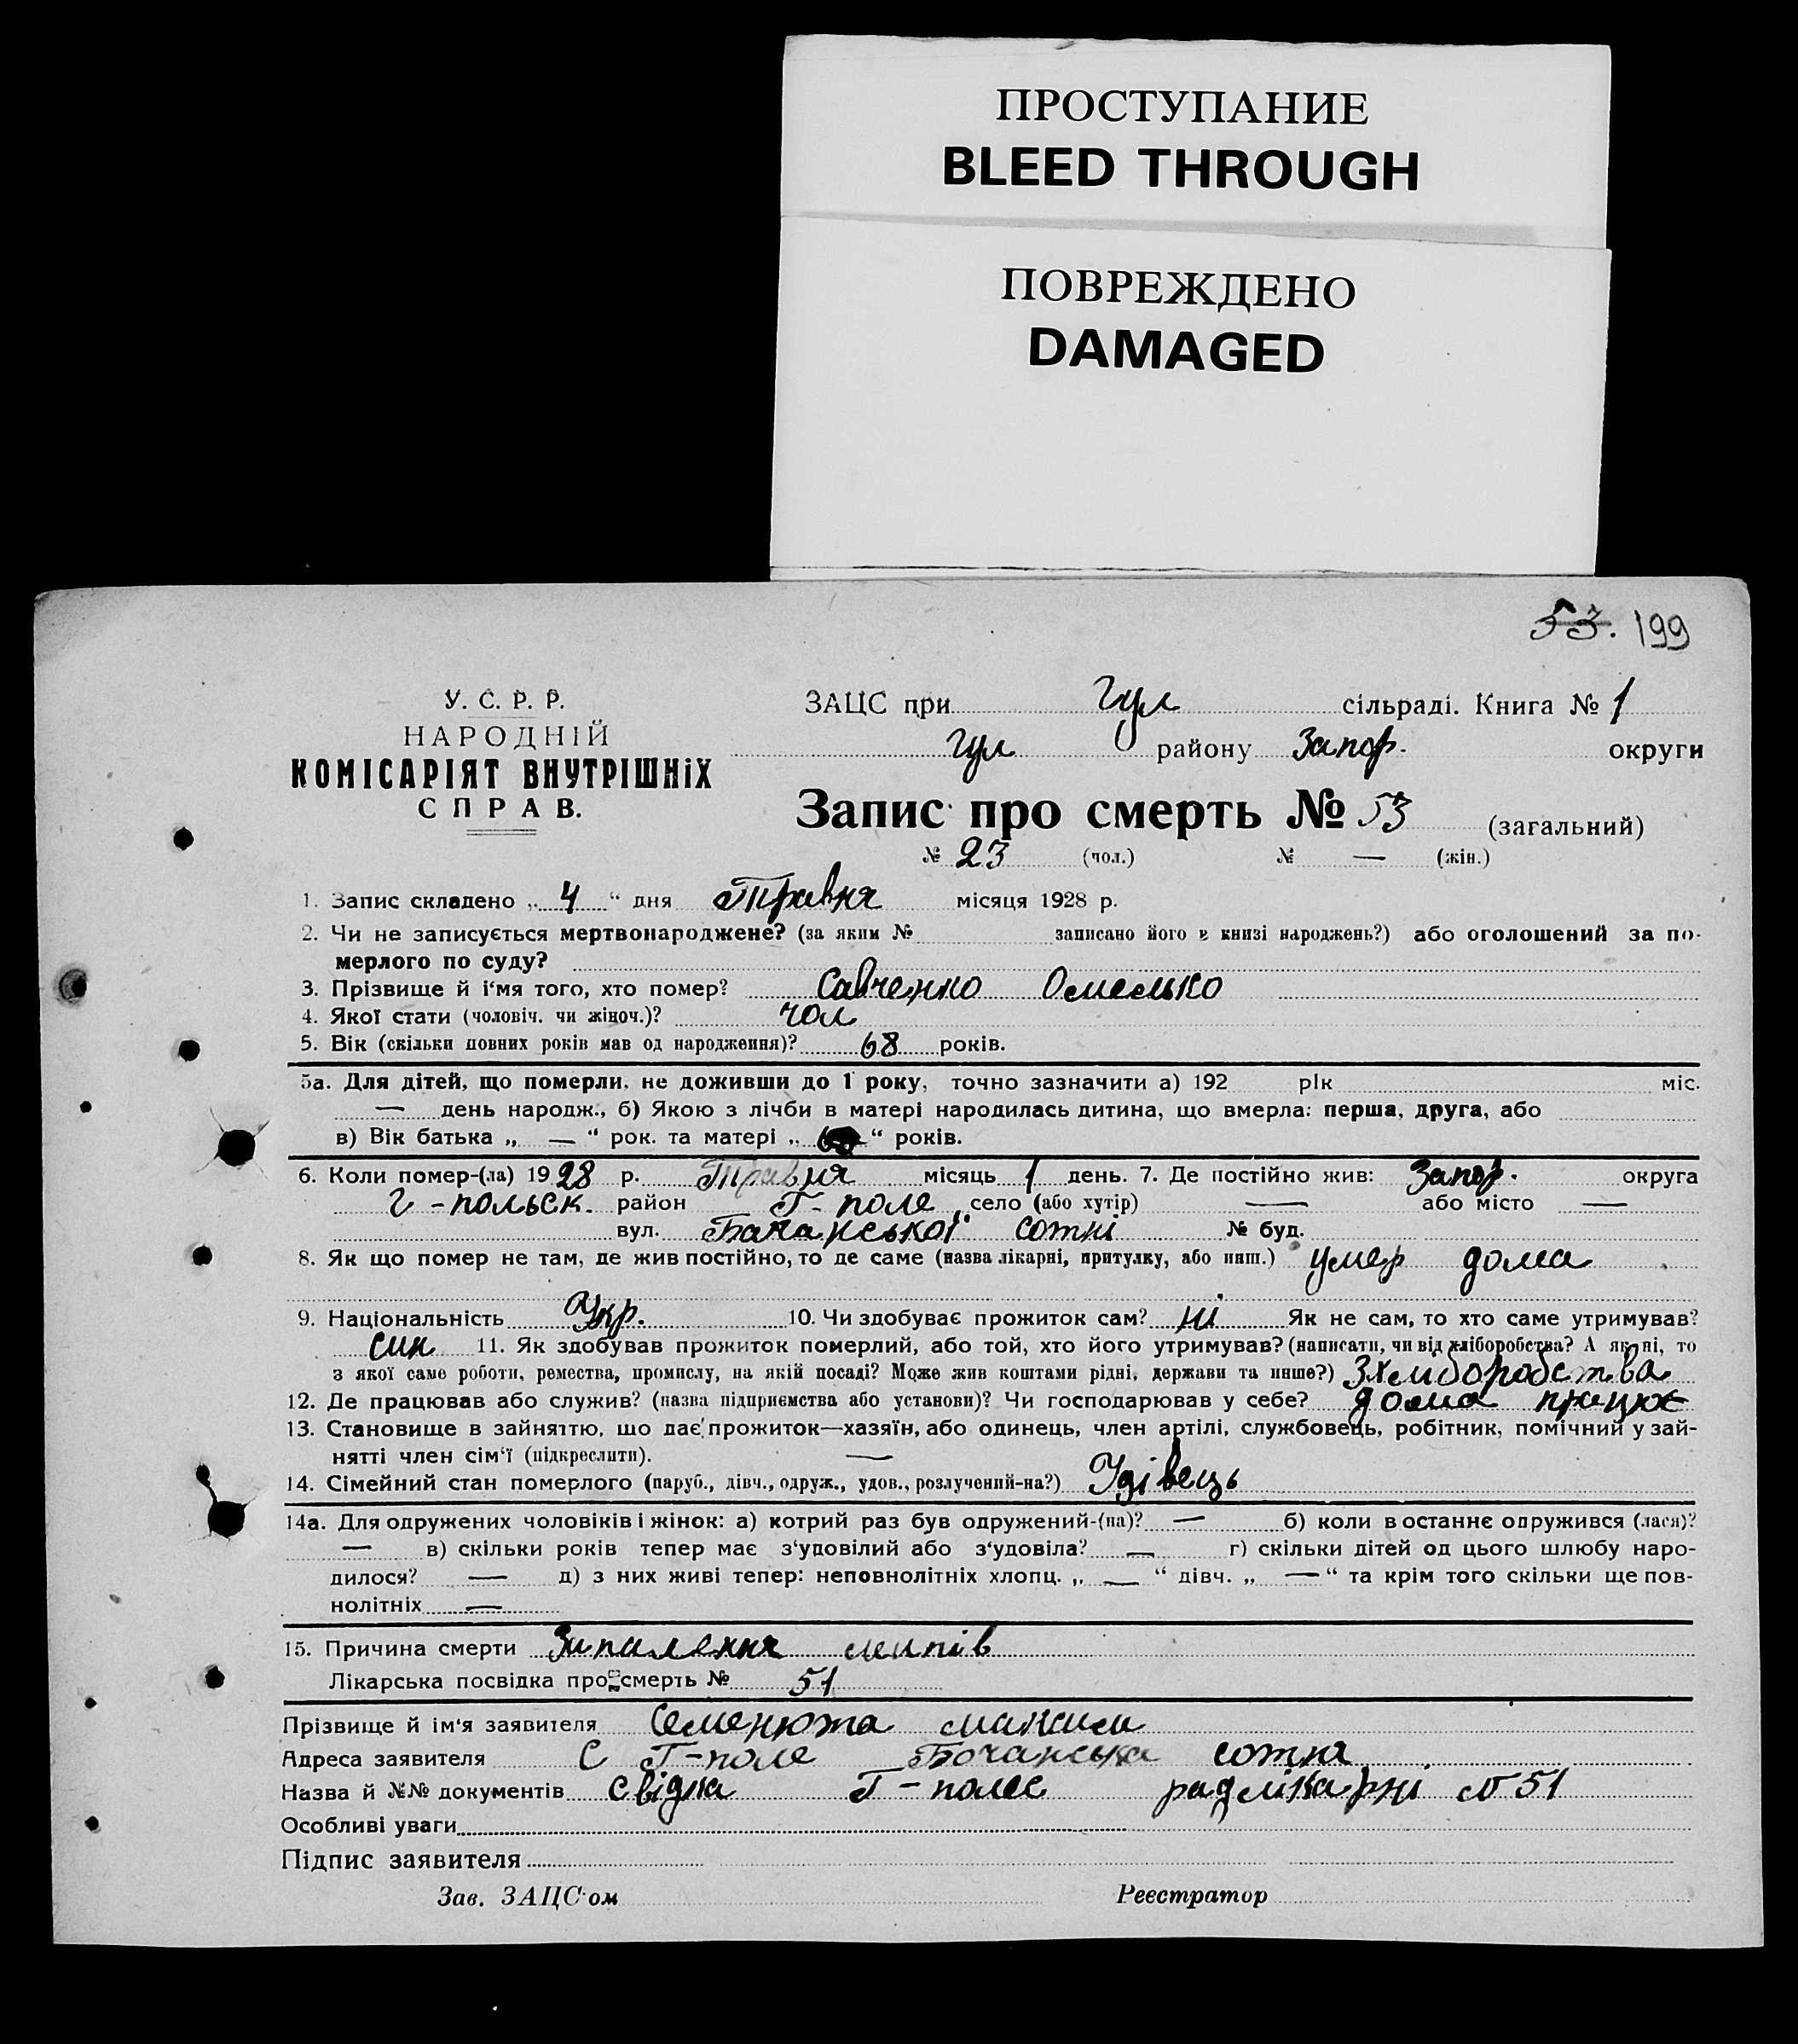 ПРОСТУПАНИЕ
BLEED THROUGH
ПОВРЕЖДЕНО
DAMAGED
53. 199
У. С. Р. Р.
НАРОДНІЙ
КОМІСАРІЯТ ВНУТРІШНіХ
СПРАВ.
ЗАЦС при Гул сільраді. Книга № 1
Гул району Запор. округи
Запис про смерть № 53 (загальний)
№ 23 (чол.) № — (жін.)
1. Запис складено „ 4 “ дня Травня місяця 1928 р.
2. Чи не записується мертвонароджене? (за яким № записано його в книзі народжень?) або оголошений за по-
мерлого по суду?
3. Прізвище й і‘мя того, хто помер? Савченко Омелько
4. Якої стати (чоловіч. чи жіноч.)? чол
5. Вік (скільки повних років мав од народження)? 68 років.
5а. Для дітей, що померли, не доживши до 1 року, точно зазначити а) 192 рік міс.
— день народж., б) Якою з лічби в матері народилась дитина, що вмерла: перша, друга, або
в) Вік батька „ — “ рок. та матері „ “ років.
6. Коли помер-(ла) 1928 р. Травня місяць 1 день. 7. Де постійно жив: Запор. округа
Г-польск. район Г-поле село (або хутір) — або місто —
вул. сотні № буд.
8. Як що помер не там, де жив постійно, то де саме (назва лікарні, притулку, або инш.) умер дома
9. Національність Укр. 10. Чи здобуває прожиток сам? ні Як не сам, то хто саме утримував?
син 11. Як здобував прожиток померлий, або той, хто його утримував? (написати, чи від хліборобства? А як ні, то
з якої саме роботи, ремества, промислу, на якій посаді? Може жив коштами рідні, держави та инше?) Зхлиборобства
12. Де працював або служив? (назва підприємства або установи)? Чи господарював у себе? дома працює
13. Становище в зайняттю, що дає прожиток—хазяїн, або одинець, член артілі, службовець, робітник, помічний у зай-
нятті член сім‘ї (підкреслити). —
14. Сімейний стан померлого (паруб., дівч., одруж., удов., розлучений-на?) Удівець
14а. Для одружених чоловіків і жінок: а) котрий раз був одружений-(на)? — б) коли в останнє одружився (лася)?
— в) скільки років тепер має з‘удовілий або з‘удовіла? — г) скільки дітей од цього шлюбу наро-
дилося? — д) з них живі тепер: неповнолітніх хлопц. „ — “ дівч. „ — “ та крім того скільки ще пов-
нолітніх —
15. Причина смерти Запалення липів
Лікарська посвідка про смерть № 51
Прізвище й ім‘я заявителя Семенюта Максим
Адреса заявителя С Г-поле Бочанська сотня
Назва й №№ документів свідка Г-полес радлікарні № 51
Особливі уваги
Підпис заявителя
Зав. ЗАЦС‘ом Реєстратор